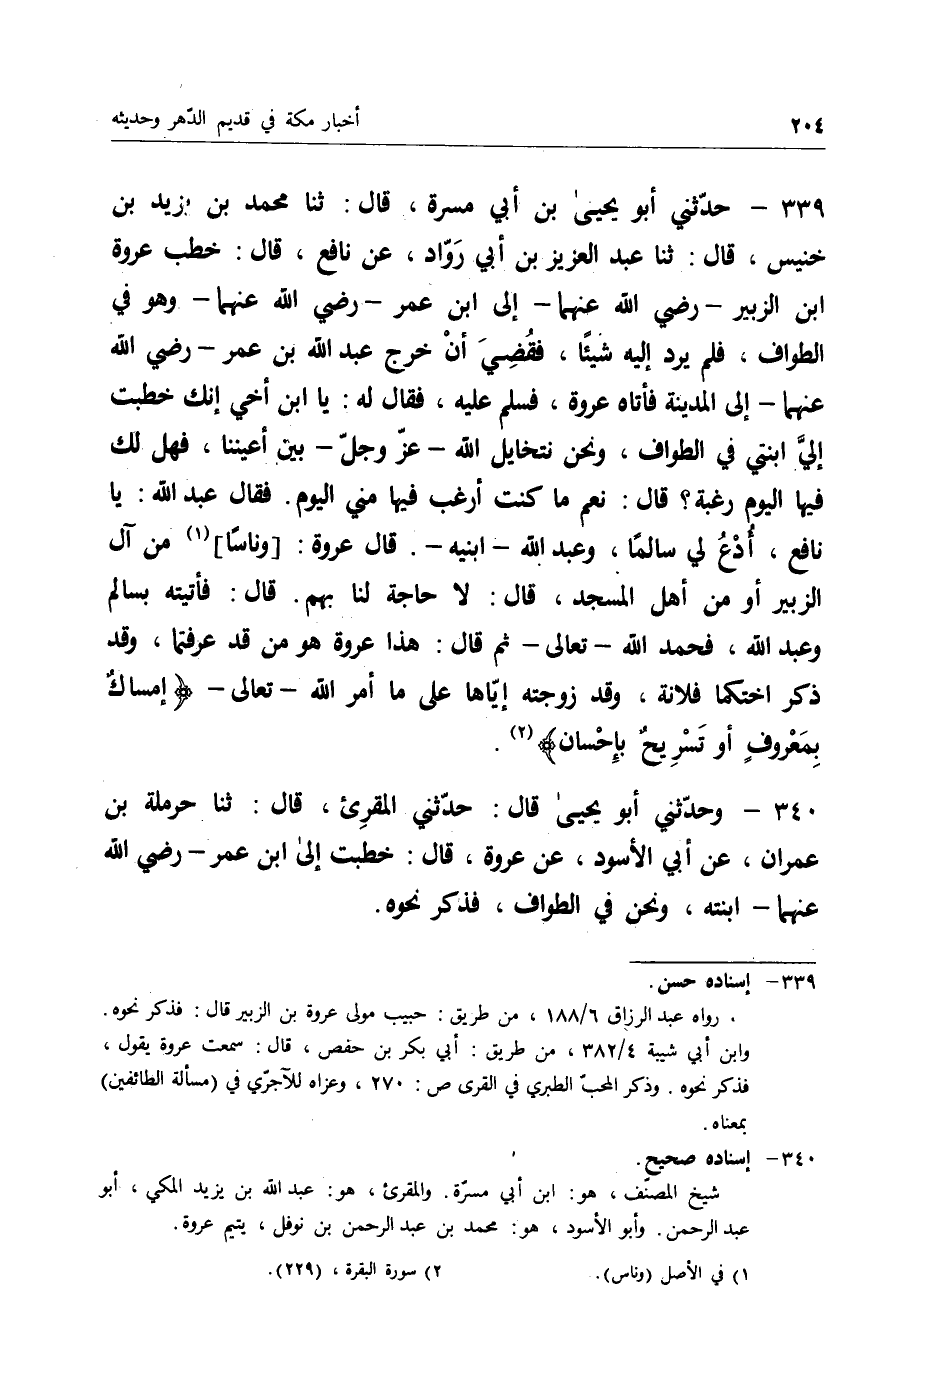 ٢٠٤ أخبار مكة في قديم الدّهر وحديثه
٣٣٩ – حدّثني أبو يحيىٰ بن أبي مسرة ، قال : ثنا محمد بن يزيد بن
خنيس ، قال : ثنا عبد العزيز بن أبي رَوّاد ، عن نافع ، قال : خطب عروة
ابن الزبير – رضي الله عنهما – إلى ابن عمر – رضي الله عنهما – وهو في
الطواف ، فلم يرد إليه شيئًا ، فقُضِيَ أنْ خرج عبد الله بن عمر – رضي الله
عنهما – إلى المدينة فأتاه عروة ، فسلم عليه ، فقال له : يا ابن أخي إنك خطبت
إليَّ ابنتي في الطواف ، ونحن نتخايل الله – عزّ وجلّ – بين أعيننا ، فهل لك
فيها اليوم رغبة؟ قال : نعم ما كنت أرغب فيها مني اليوم. فقال عبد الله : يا
نافع ، أُدْعُ لي سالمًا ، وعبد الله – ابنيه – . قال عروة : [وناسًا](١) من آل
الزبير أو من أهل المسجد ، قال : لا حاجة لنا بهم. قال : فأتيته بسالم
وعبد الله ، فحمد الله – تعالى – ثم قال : هذا عروة هو من قد عرفتما ، وقد
ذكر اختكما فلانة ، وقد زوجته إيّاها على ما أمر الله – تعالى – ﴿إمساكٌ
بِمَعْروفٍ أو تَسْرِيحٌ بإِحْسان﴾(٢) .
٣٤٠ – وحدّثني أبو يحيىٰ قال : حدّثني المقرِئ ، قال : ثنا حرملة بن
عمران ، عن أبي الأسود ، عن عروة ، قال : خطبت إلىٰ ابن عمر – رضي الله
عنهما – ابنته ، ونحن في الطواف ، فذكر نحوه.
٣٣٩– إسناده حسن.
رواه عبد الرزاق ١٨٨/٦ ، من طريق : حبيب مولى عروة بن الزبير قال : فذكر نحوه.
وابن أبي شيبة ٣٨٢/٤ ، من طريق : أبي بكر بن حفص ، قال : سمعت عروة يقول ،
فذكر نحوه . وذكر المحبّ الطبري في القرى ص : ٢٧٠ ، وعزاه للآجرّي في (مسألة الطائفين)
بمعناه.
٣٤٠– إسناده صحيح.
شيخ المصنّف ، هو : ابن أبي مسرّة. والمقرئ ، هو : عبد الله بن يزيد المكي ، أبو
عبد الرحمن. وأبو الأسود ، هو : محمد بن عبد الرحمن بن نوفل ، يتيم عروة.
١) في الأصل (وناس). ٢) سورة البقرة ، (٢٢٩).